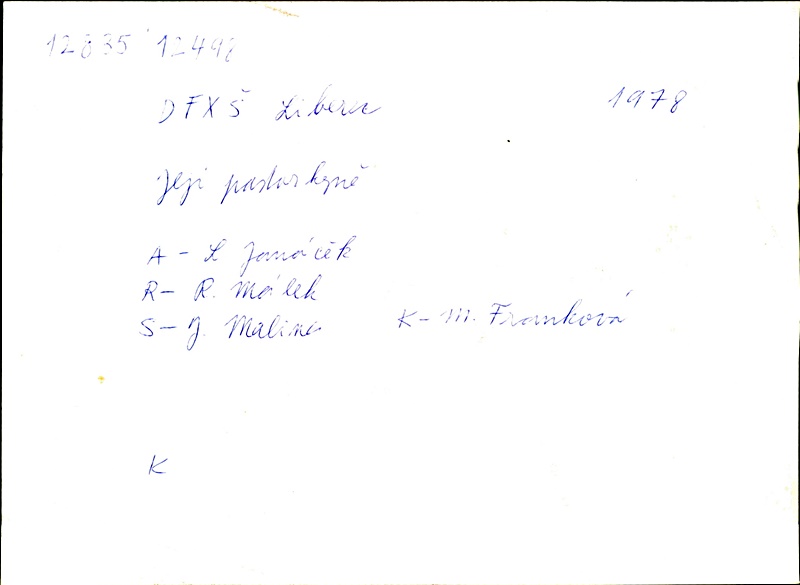 12835 12498
DFXŠ Liberec 1978
Její pastorkyně
A - L Janáček
R - R. Málek
S - J. Malina K - M. Franková
K